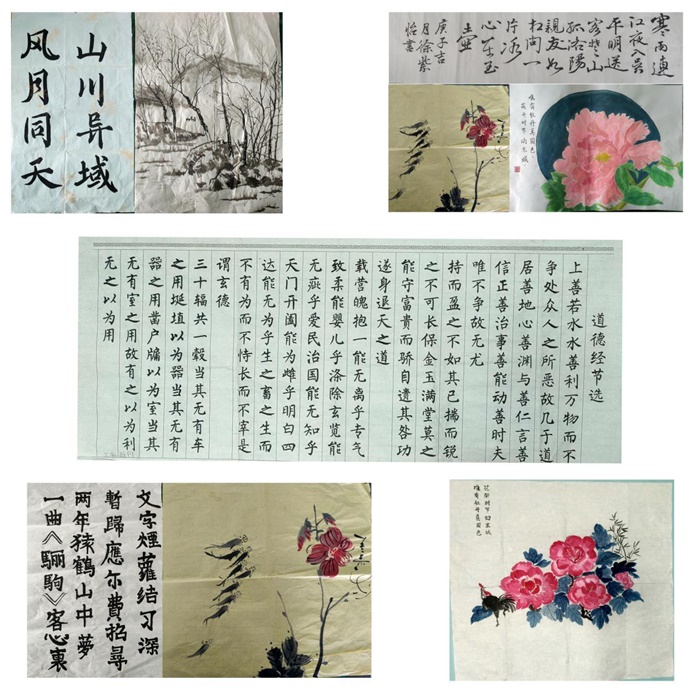 山川异域
风月同天
寒雨連
江夜入吴
平明送
客楚山
孤洛陽
親友如
相问一
片冰
心在玉
壶
庚子吉
月徐紫
怡書
唯有牡丹真国色
花开时节动京城
道德经节选
上善若水水善利万物而不
争处众人之所恶故几于道
居善地心善渊与善仁言善
信正善治事善能动善时夫
唯不争故无尤
持而盈之不如其已揣而锐
之不可长保金玉满堂莫之
能守富贵而骄自遗其咎功
遂身退天之道
载营魄抱一能无离乎专气
致柔能婴儿乎涤除玄览能
无疵乎爱民治国能无知乎
天门开阖能为雌乎明白四
达能无为乎生之畜之生而
不有为而不恃长而不宰是
谓玄德
三十辐共一毂当其无有车
之用埏埴以为器当其无有
器之用凿户牖以为室当其
无有室之用故有之以为利
无之以为用
文字煙蘿结习深
暫歸應尔費招尋
两年猿鹤山中夢
一曲《骊驹》客心裏
花开时节动京城
唯有牡丹真国色